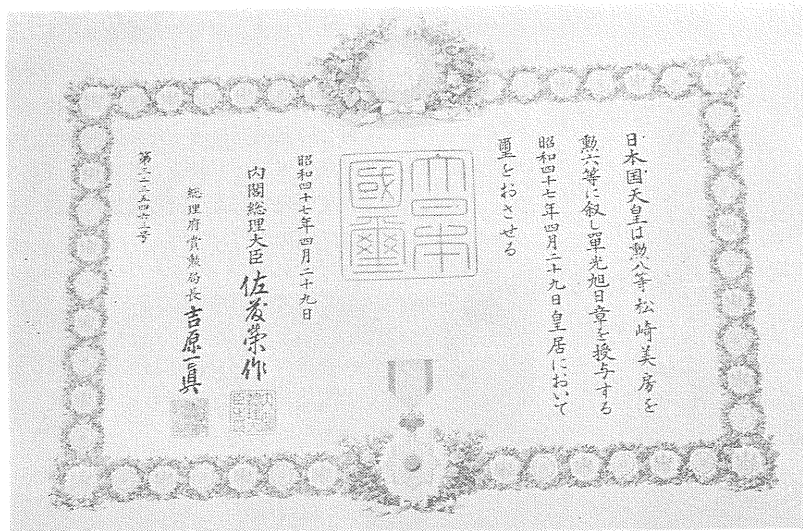 日本国天皇は勲八等松崎美房を
勲六等に叙し単光旭日章を授与する
昭和四十七年四月二十九日皇居において
璽をおさせる
大日本
國璽
昭和四十七年四月二十九日
内閣総理大臣 佐藤榮作
総理府賞勲局長 吉原一眞